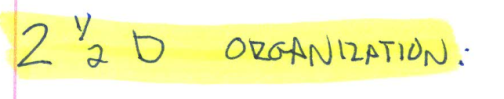 2 1/2 D ORGANIZATION: